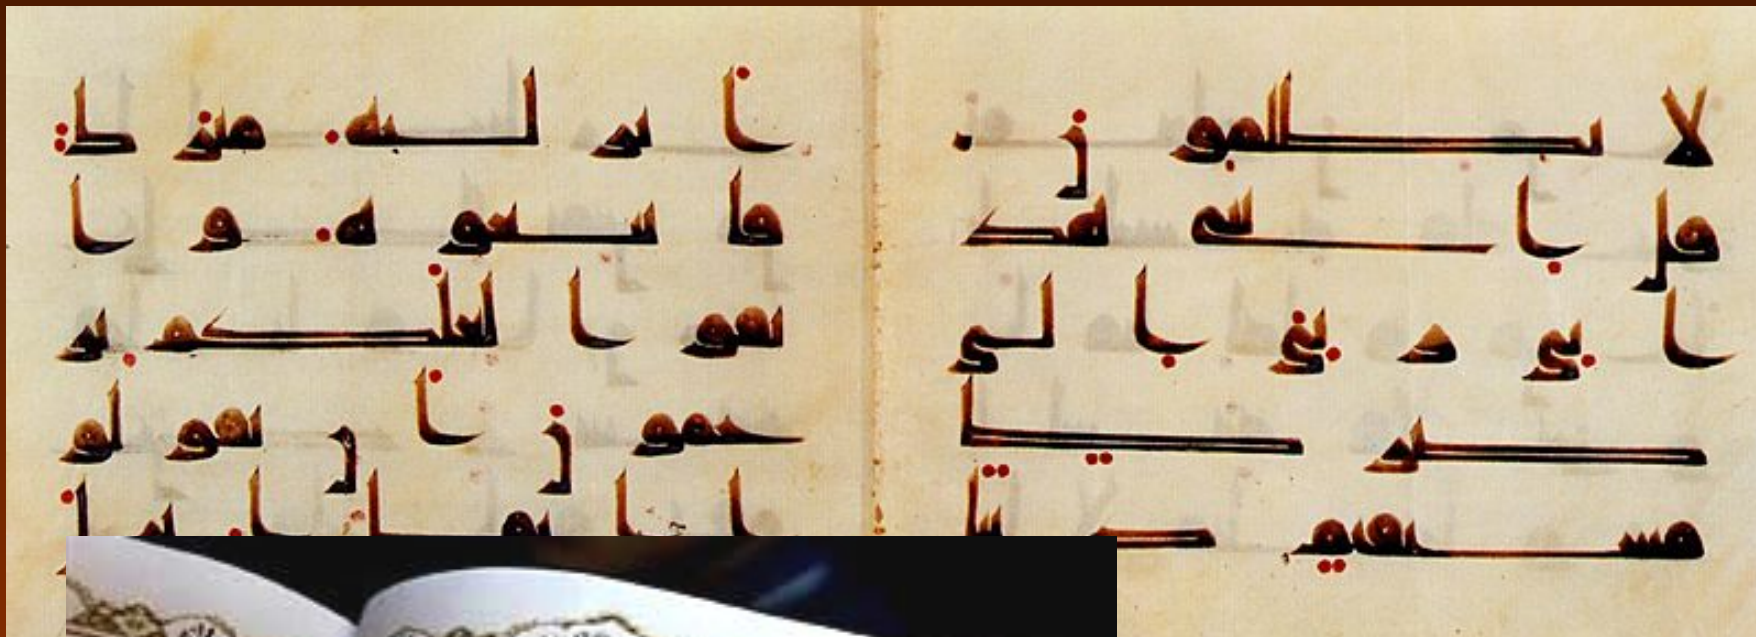 لا يظلمون
قل اننى هد
ا نى ر بى ا لى
صر ط
مستقيم دينا
ا نز لنه مبر ك
فا تبعوه و ا
تقوا لعلكم تر
حمون ا ن تقولو
ا ا نما